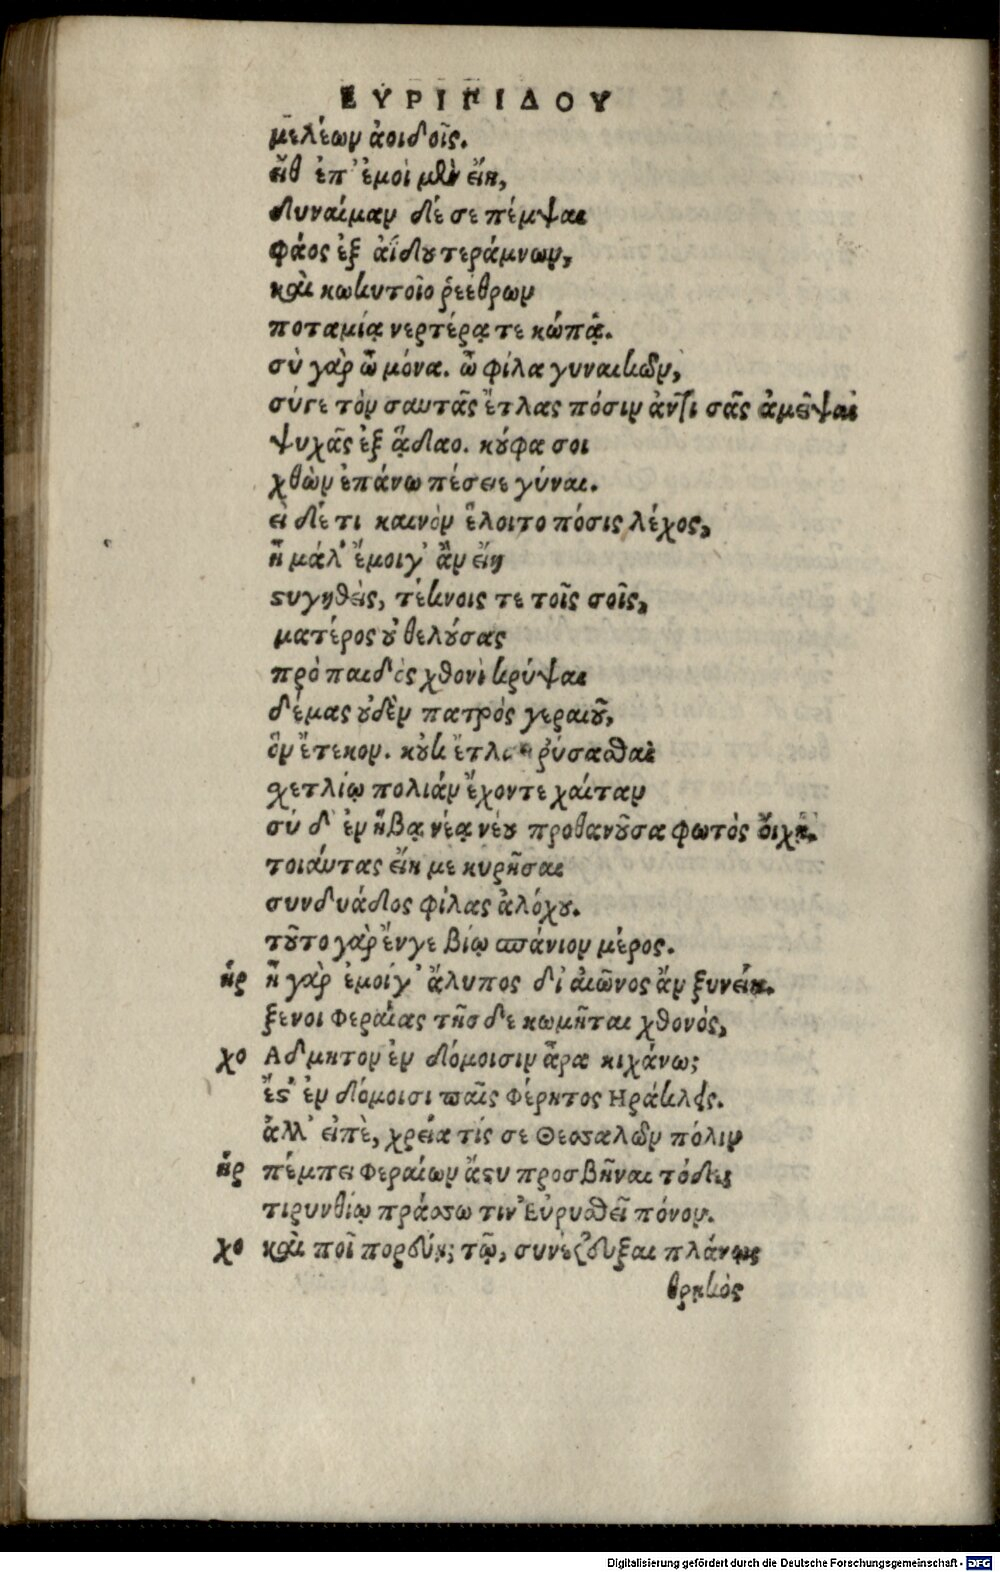 ΕΥΡΙΠΙΔΟΥ
μελέων ἀοιδοῖς.
εἴθ ἐπ' ἐμοὶ μὲν εἴη,
δυναίμαν δέ σε πέμψαι
φάος ἐξ ἀΐδου τεράμνων,
καὶ κωκυτοῖο ῥεέθρων
ποταμίᾳ νερτέρᾳ τε κώπᾳ.
σὺ γὰρ ὦ μόνα. ὦ φίλα γυναικῶν,
σύγε τὸν σαυτᾶς ἔτλας πόσιν ἀντὶ σᾶς ἀμεῖψαι
ψυχᾶς ἐξ ᾅδαο. κούφα σοι
χθὼν ἐπάνω πέσειε γύναι.
εἰ δέ τι καινὸν ἕλοιτο πόσις λέχος,
ἦ μάλ' ἔμοιγ' ἂν εἴη
στυγηθεὶς, τέκνοις τε τοῖς σοῖς,
ματέρος οὐ θελούσας
πρὸ παιδὸς χθονὶ κρύψαι
δέμας οὐδὲν πατρὸς γεραιοῦ,
ὃν ἔτεκον. κοὐκ ῥύσασθαι
σχετλίῳ πολιάν ἔχοντε χαίταν
σύ δ' ἐν ἥβᾳ νέᾳ νέου προθανοῦσα φωτὸς οἴχῃ.
τοιάυτας εἴη με κυρῆσαι
συνδυάδος φίλας ἀλόχου.
τοῦτο γὰρ ἔνγε βίῳ σπάνιον μέρος.
ἡρ ἦ γὰρ ἐμοίγ' ἄλυπος δι' αἰῶνος ἂν ξυνείη.
ξενοι Φεραίας τῆσδε κωμῆται χθονός,
χο Αδμητον ἐν δόμοισιν ἆρα κιχάνω;
ἔστ' ἐν δόμοισι παῖς Φέρητος Ηράκλεις.
ἀλλ' εἰπὲ, χρεία τίς σε Θεσσαλῶν πόλιν
ἡρ πέμπει Φεραίων ἄστυ προσβῆναι τόδε;
τιρυνθίῳ πράσσω τιν' Εὐρυσθεῖ πόνον.
χο καὶ ποῖ πορεύῃ; τῷ, συνέζευξαι πλάνῳ
θρηκὸς
Digitalisierung gefördert durch die Deutsche Forschungsgemeinschaft - DFG